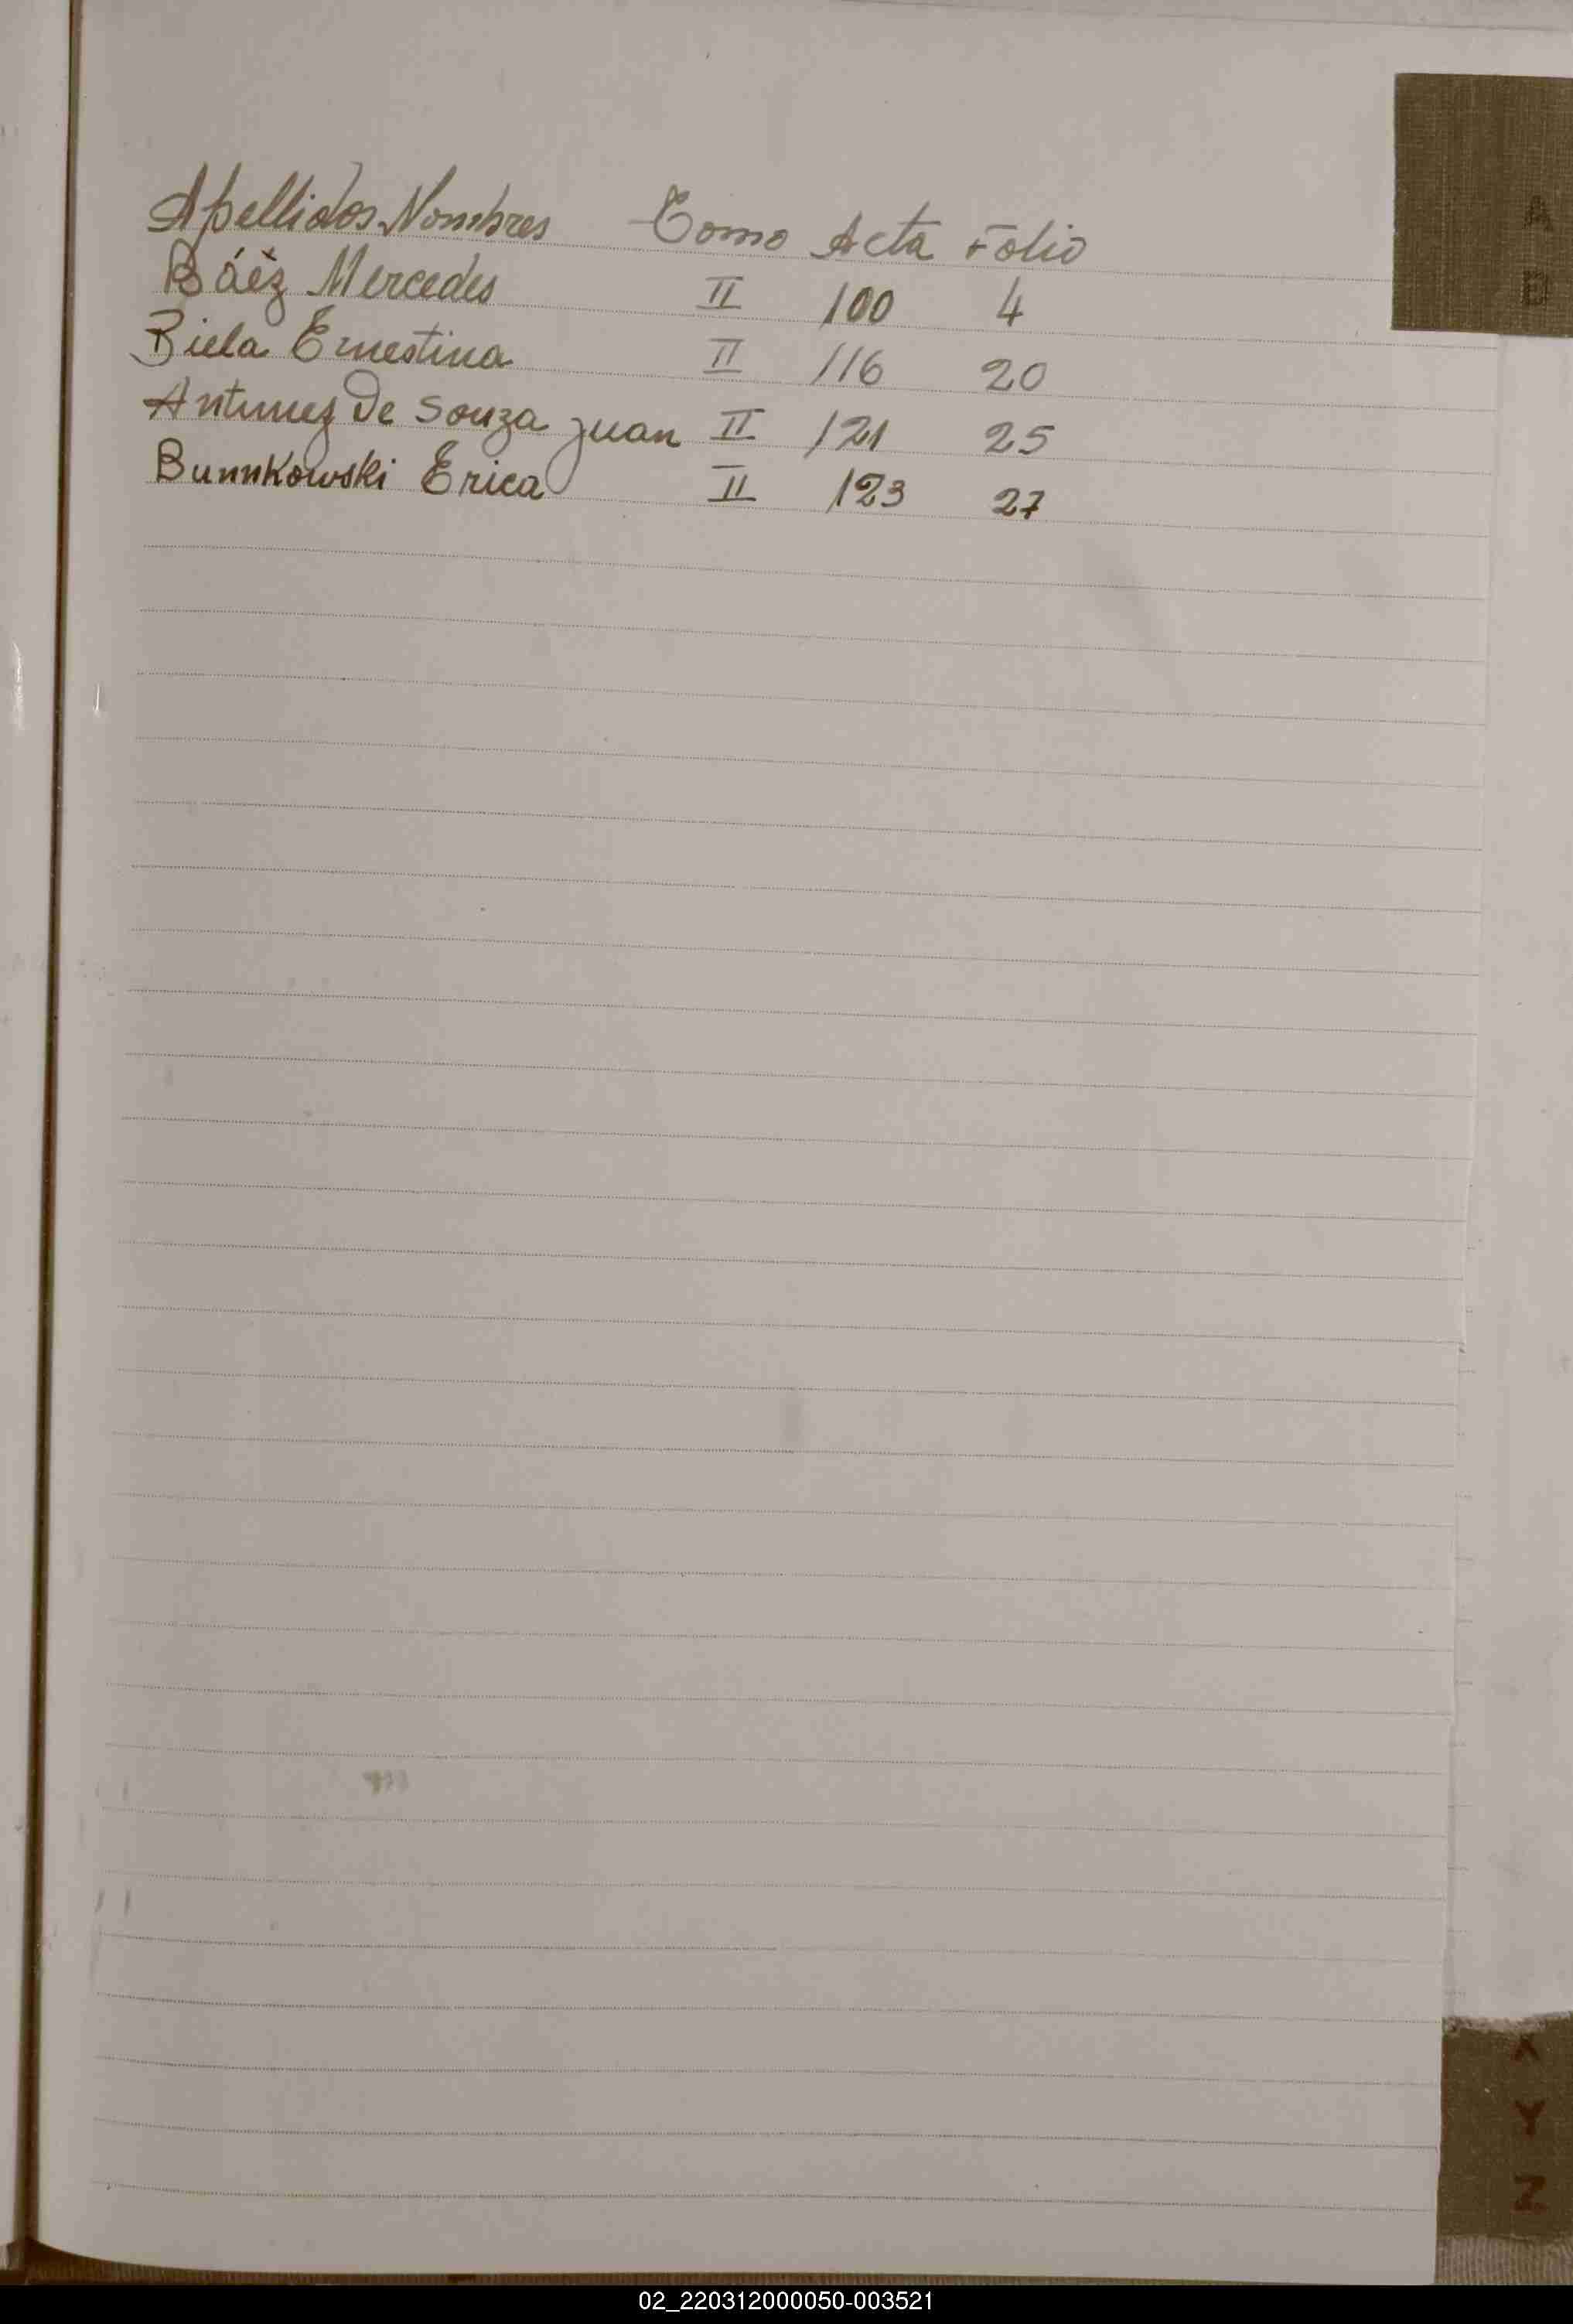 Apellidos Nombres Tomo Acta Folio
Báez Mercedes II 100 4
Biela Ernestina II 116 20
Antunez De Souza Juan II 121 25
Bunnkowski Erica II 123 27
A
B
X
Y
Z
02_220312000050-003521